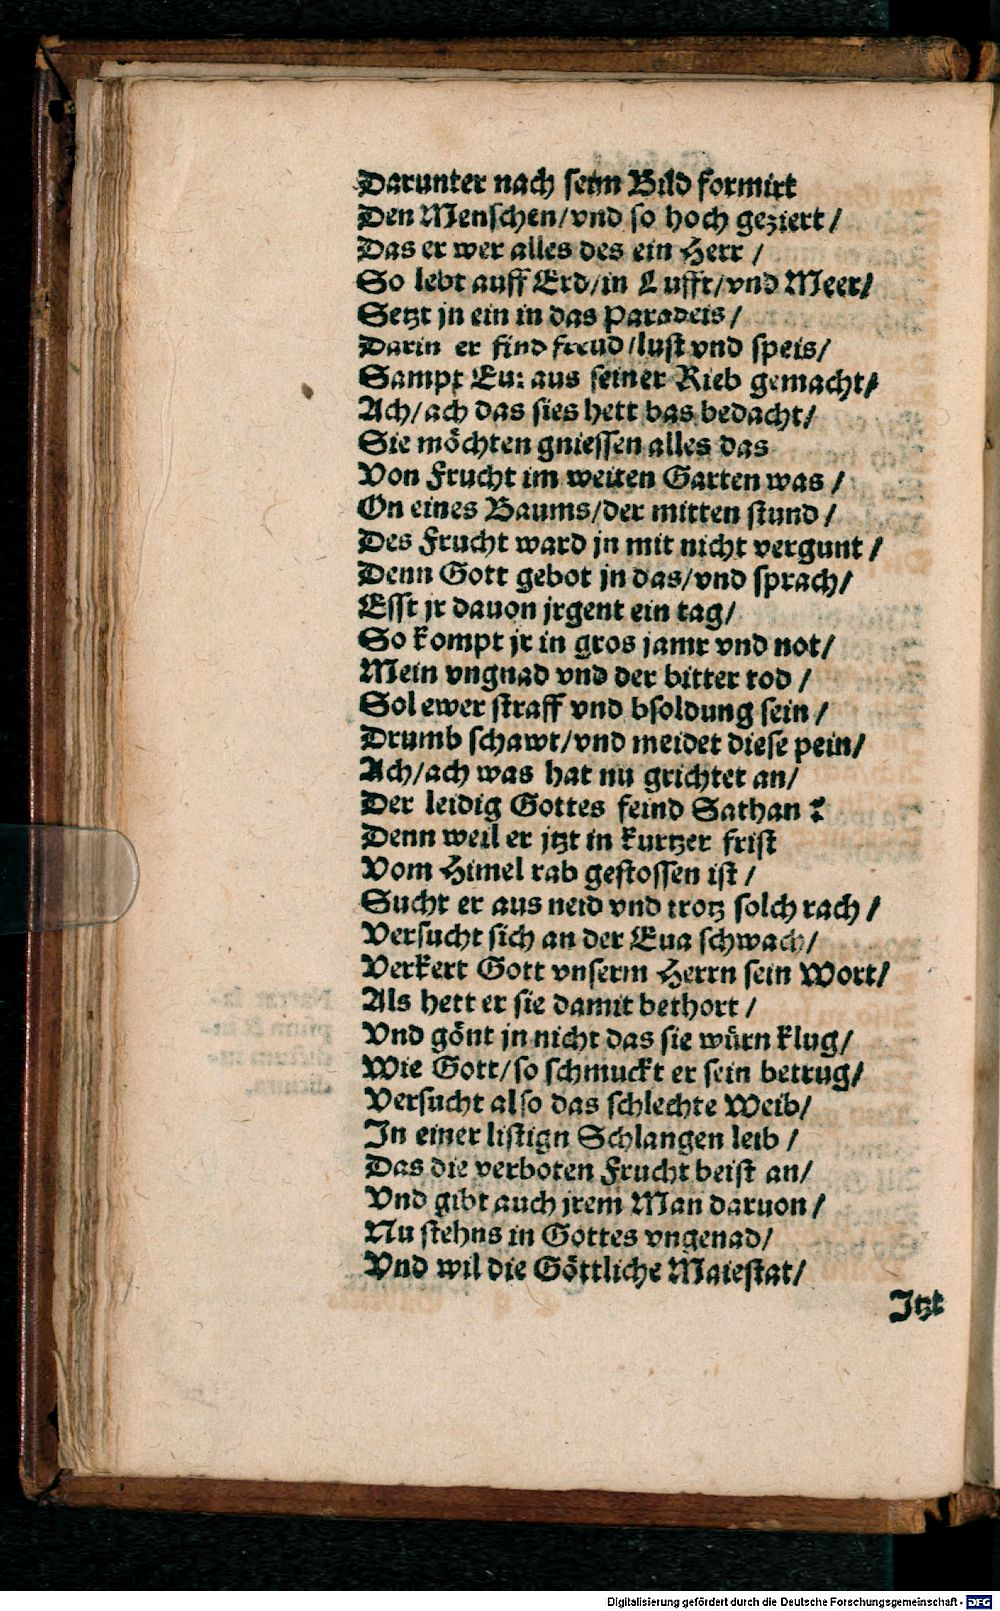 Darunter nach seim Bild formirt
Den Menschen/vnd so hoch geziert/
Das er wer alles des ein Herr/
So lebt auff Erd/in Lufft/vnd Meer/
Setzt jn ein in das Paradeis/
Darin er find freud/lust vnd speis/
Sampt Eua aus seiner Rieb gemacht/
Ach/ach das sies hett bas bedacht/
Sie möchten gniessen alles das
Von Frucht im weiten Garten was/
On eines Baums/der mitten stund/
Des Frucht ward jn mit nicht vergunt/
Denn Gott gebot jn das/vnd sprach/
Esst jr dauon jrgent ein tag/
So kompt jr in gros jamr vnd not/
Mein vngnad vnd der bitter tod/
Sol ewer straff vnd bsoldung sein/
Drumb schawt/vnd meidet diese pein/
Ach/ach was hat nu grichtet an/
Der leidig Gottes feind Sathan?
Denn weil er jtzt in kurtzer frist
Vom Himel rab gestossen ist/
Sucht er aus neid vnd trotz solch rach/
Versucht sich an der Eua schwach/
Verkert Gott vnserm Herrn sein Wort/
Als hett er sie damit bethort/
Vnd gönt jn nicht das sie würn klug/
Wie Gott/so schmuckt er sein betrug/
Versucht also das schlechte Weib/
In einer listign Schlangen leib/
Das die verboten Frucht beist an/
Vnd gibt auch jrem Man daruon/
Nu stehns in Gottes vngenad/
Vnd wil die Göttliche Maiestat/
Itzt
Digitalisierung gefördert durch die Deutsche Forschungsgemeinschaft - DFG